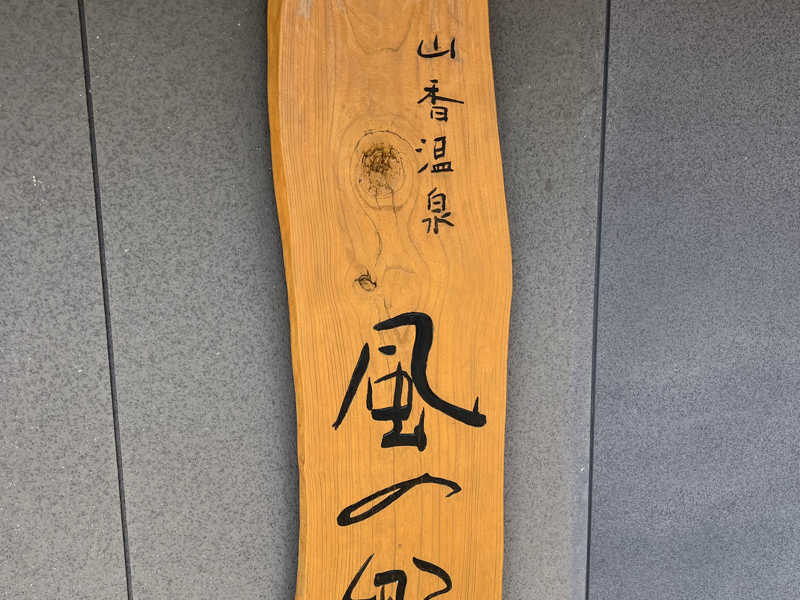 山香温泉
風の郷